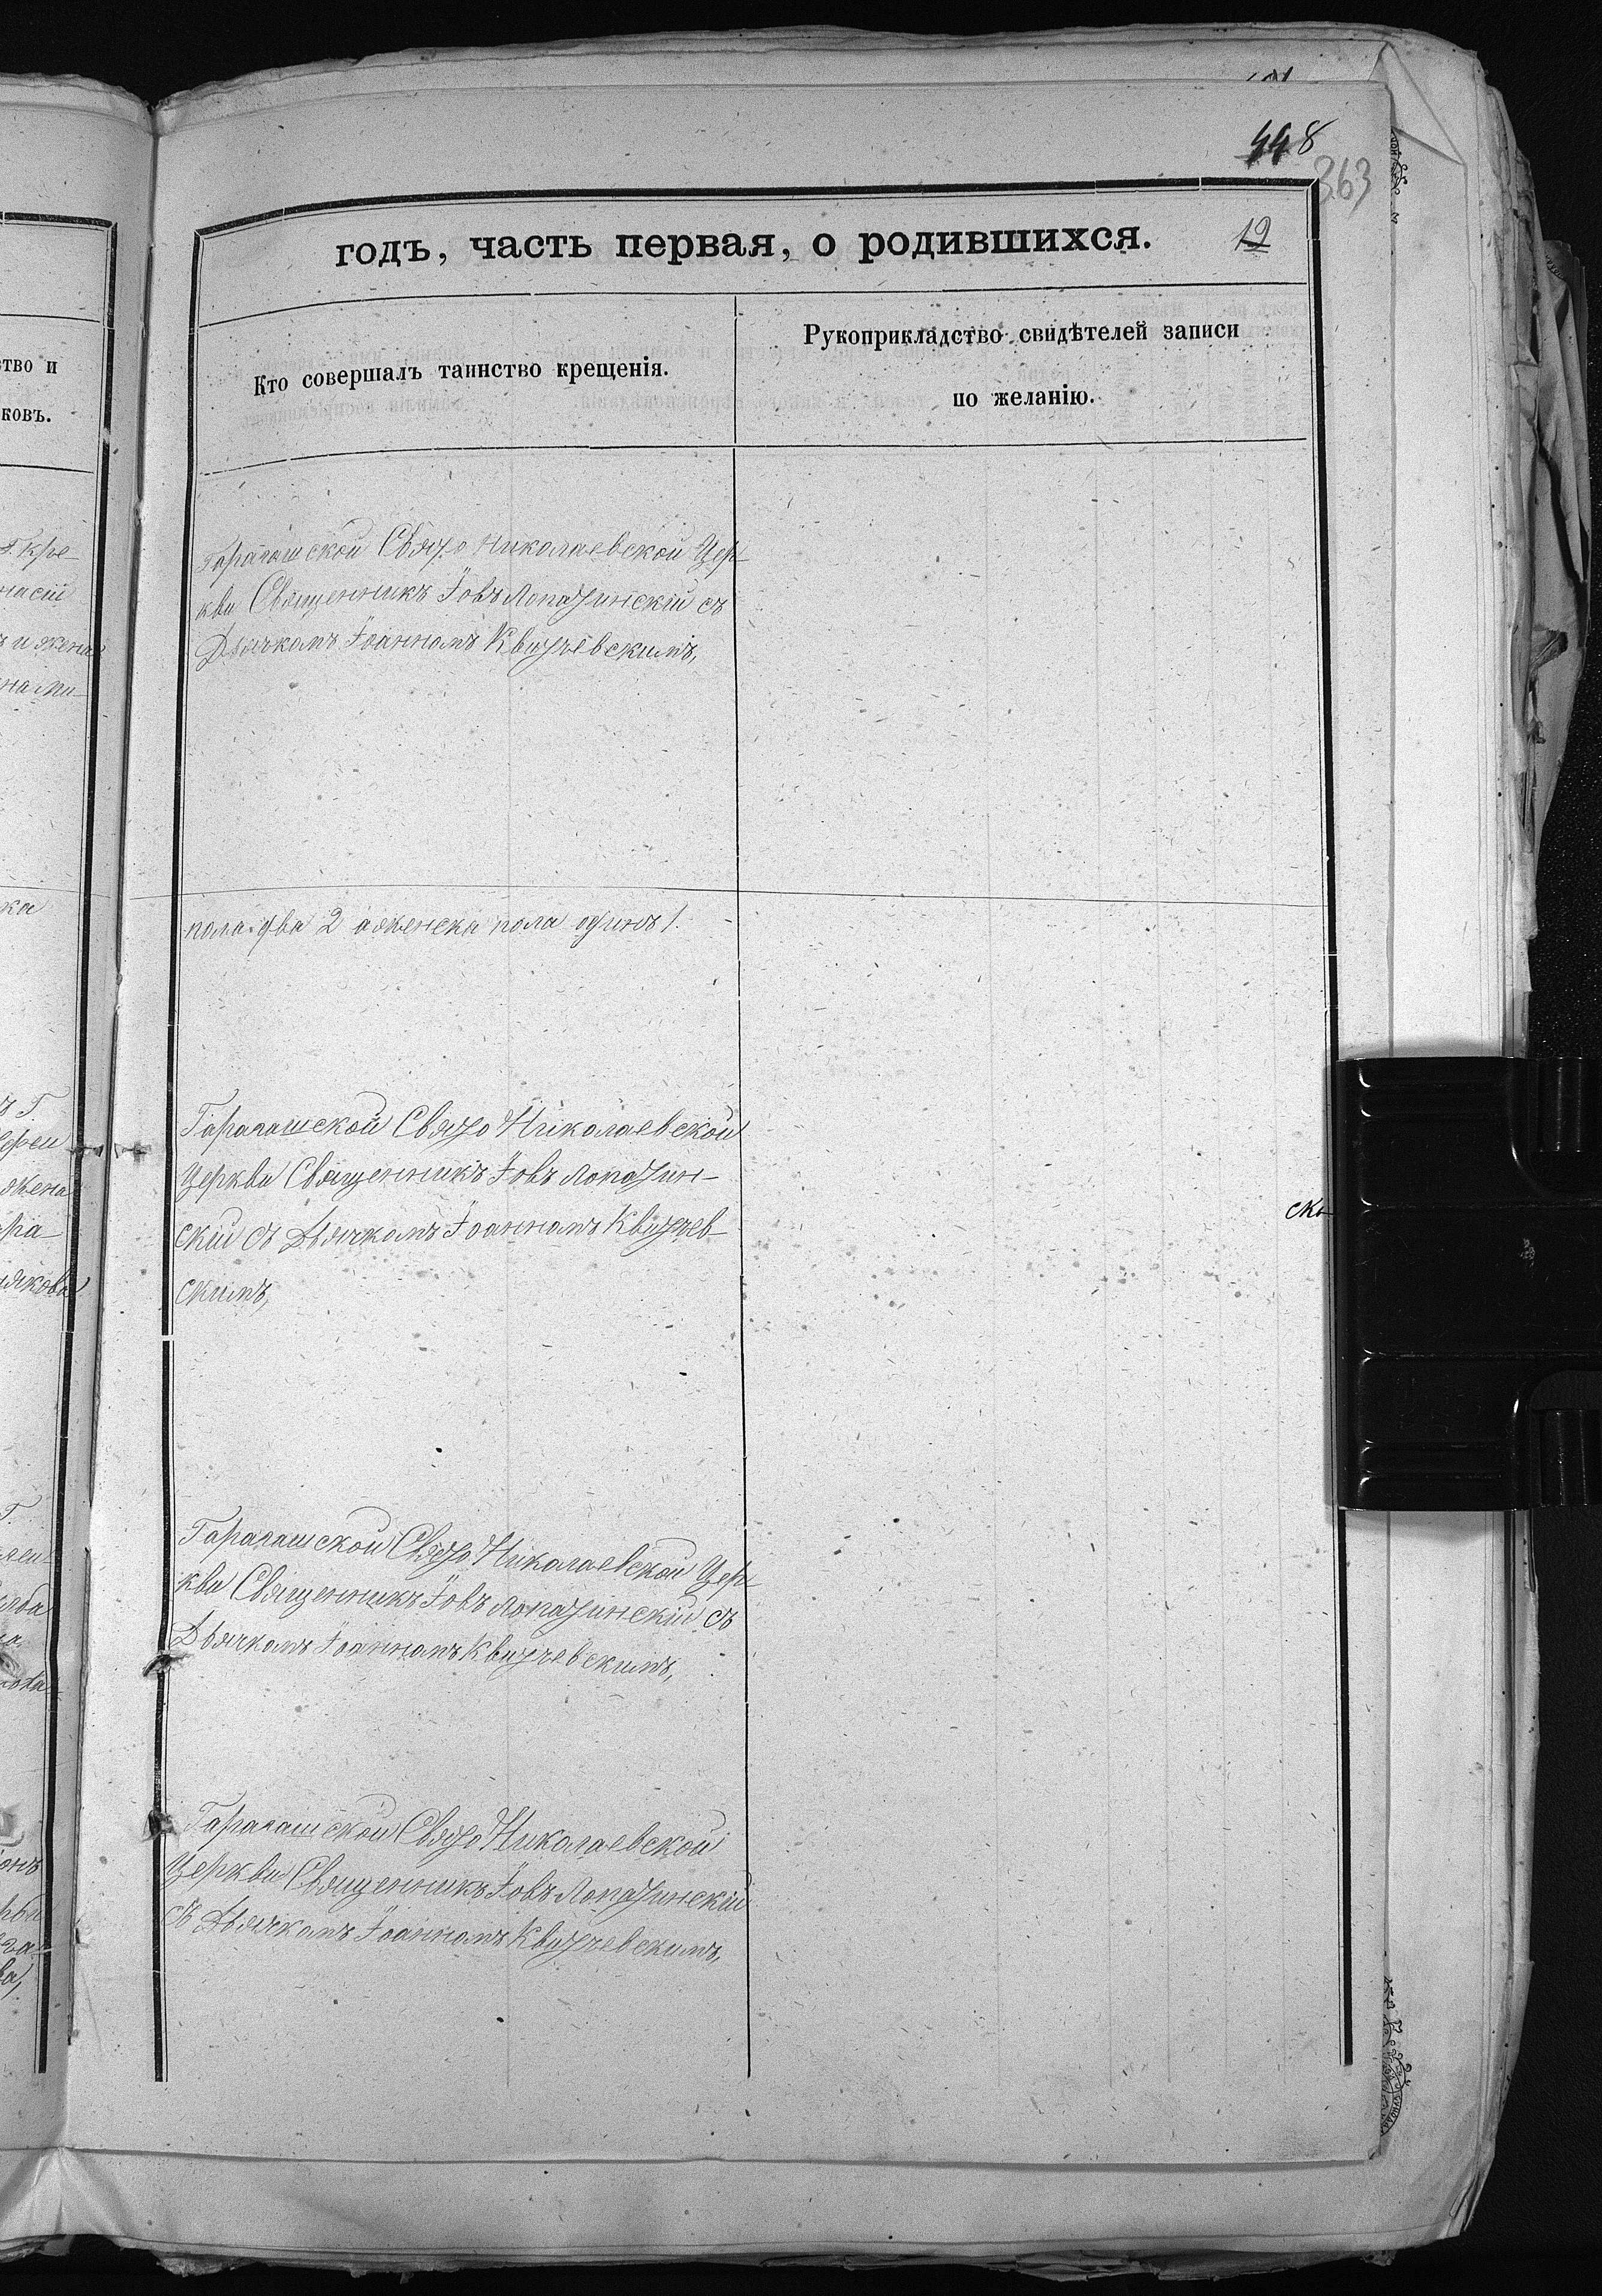 448
363
годъ, часть первая, о родившихся. 12
Кто совершалъ таинство крещенія.
Рукоприкладство свидѣтелей записи
по желанію.
ство и
ковъ.
Гарагашской Свято Николаевской Цер-
кви Священникъ Іовъ Лопатинскій съ
Дьячкомъ Іоанномъ Квитчевскимъ,
пола два 2 а женска пола одинъ 1.
Гарагашской Свято Николаевской
Церкви Священникъ Іовъ Лопатин-
скій съ Дьячкомъ Іоанномъ Квитчев-
скимъ,
Гарагашской Свято Николаевской Цер-
кви Священникъ Іовъ Лопатинскій съ
Дьячкомъ Іоанномъ Квитчевскимъ,
Гарагашской Свято Николаевской
Церкви Священникъ Іовъ Лопатинскій
съ Дьячкомъ Іоанномъ Квитчевскимъ,